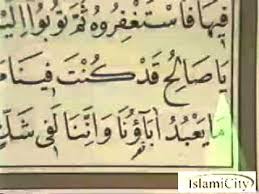 فِيهَا فَاسْتَغْفِرُوهُ ثُمَّ تُوبُوا
يَا صَالِحُ قَدْ كُنْتَ فِينَا
مَا يَعْبُدُ آبَاؤُنَا وَإِنَّنَا لَفِي
IslamiCity